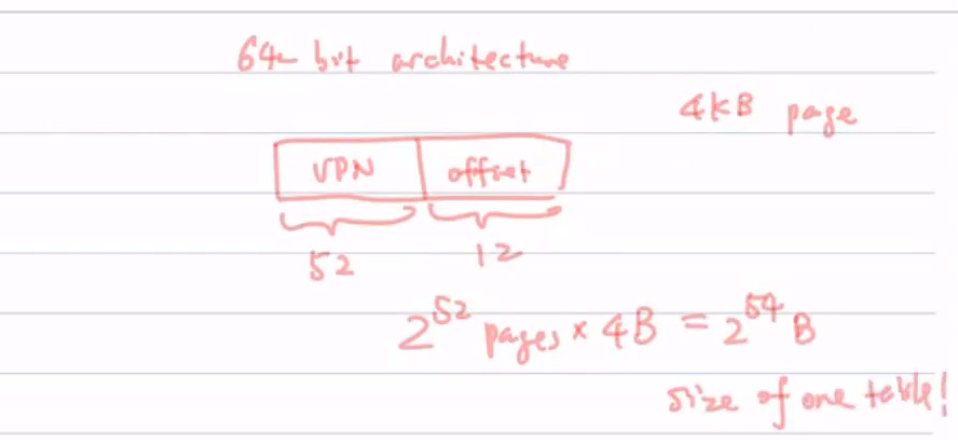 64-bit architecture
4kB page
VPN offset
52 12
2^52 pages × 4B = 2^54 B
size of one table!